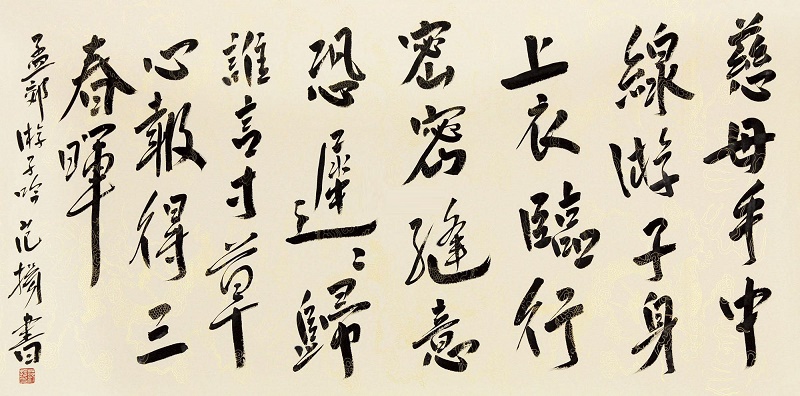 慈母手中
線游子身
上衣臨行
密密縫意
恐遲〻歸
誰言寸草
心報得三
春暉
孟郊游子吟 范揚書